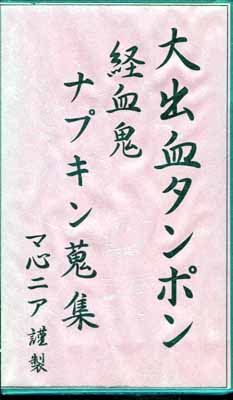 大出血タンポン
経血鬼
ナプキン蒐集
マ心ニア謹製